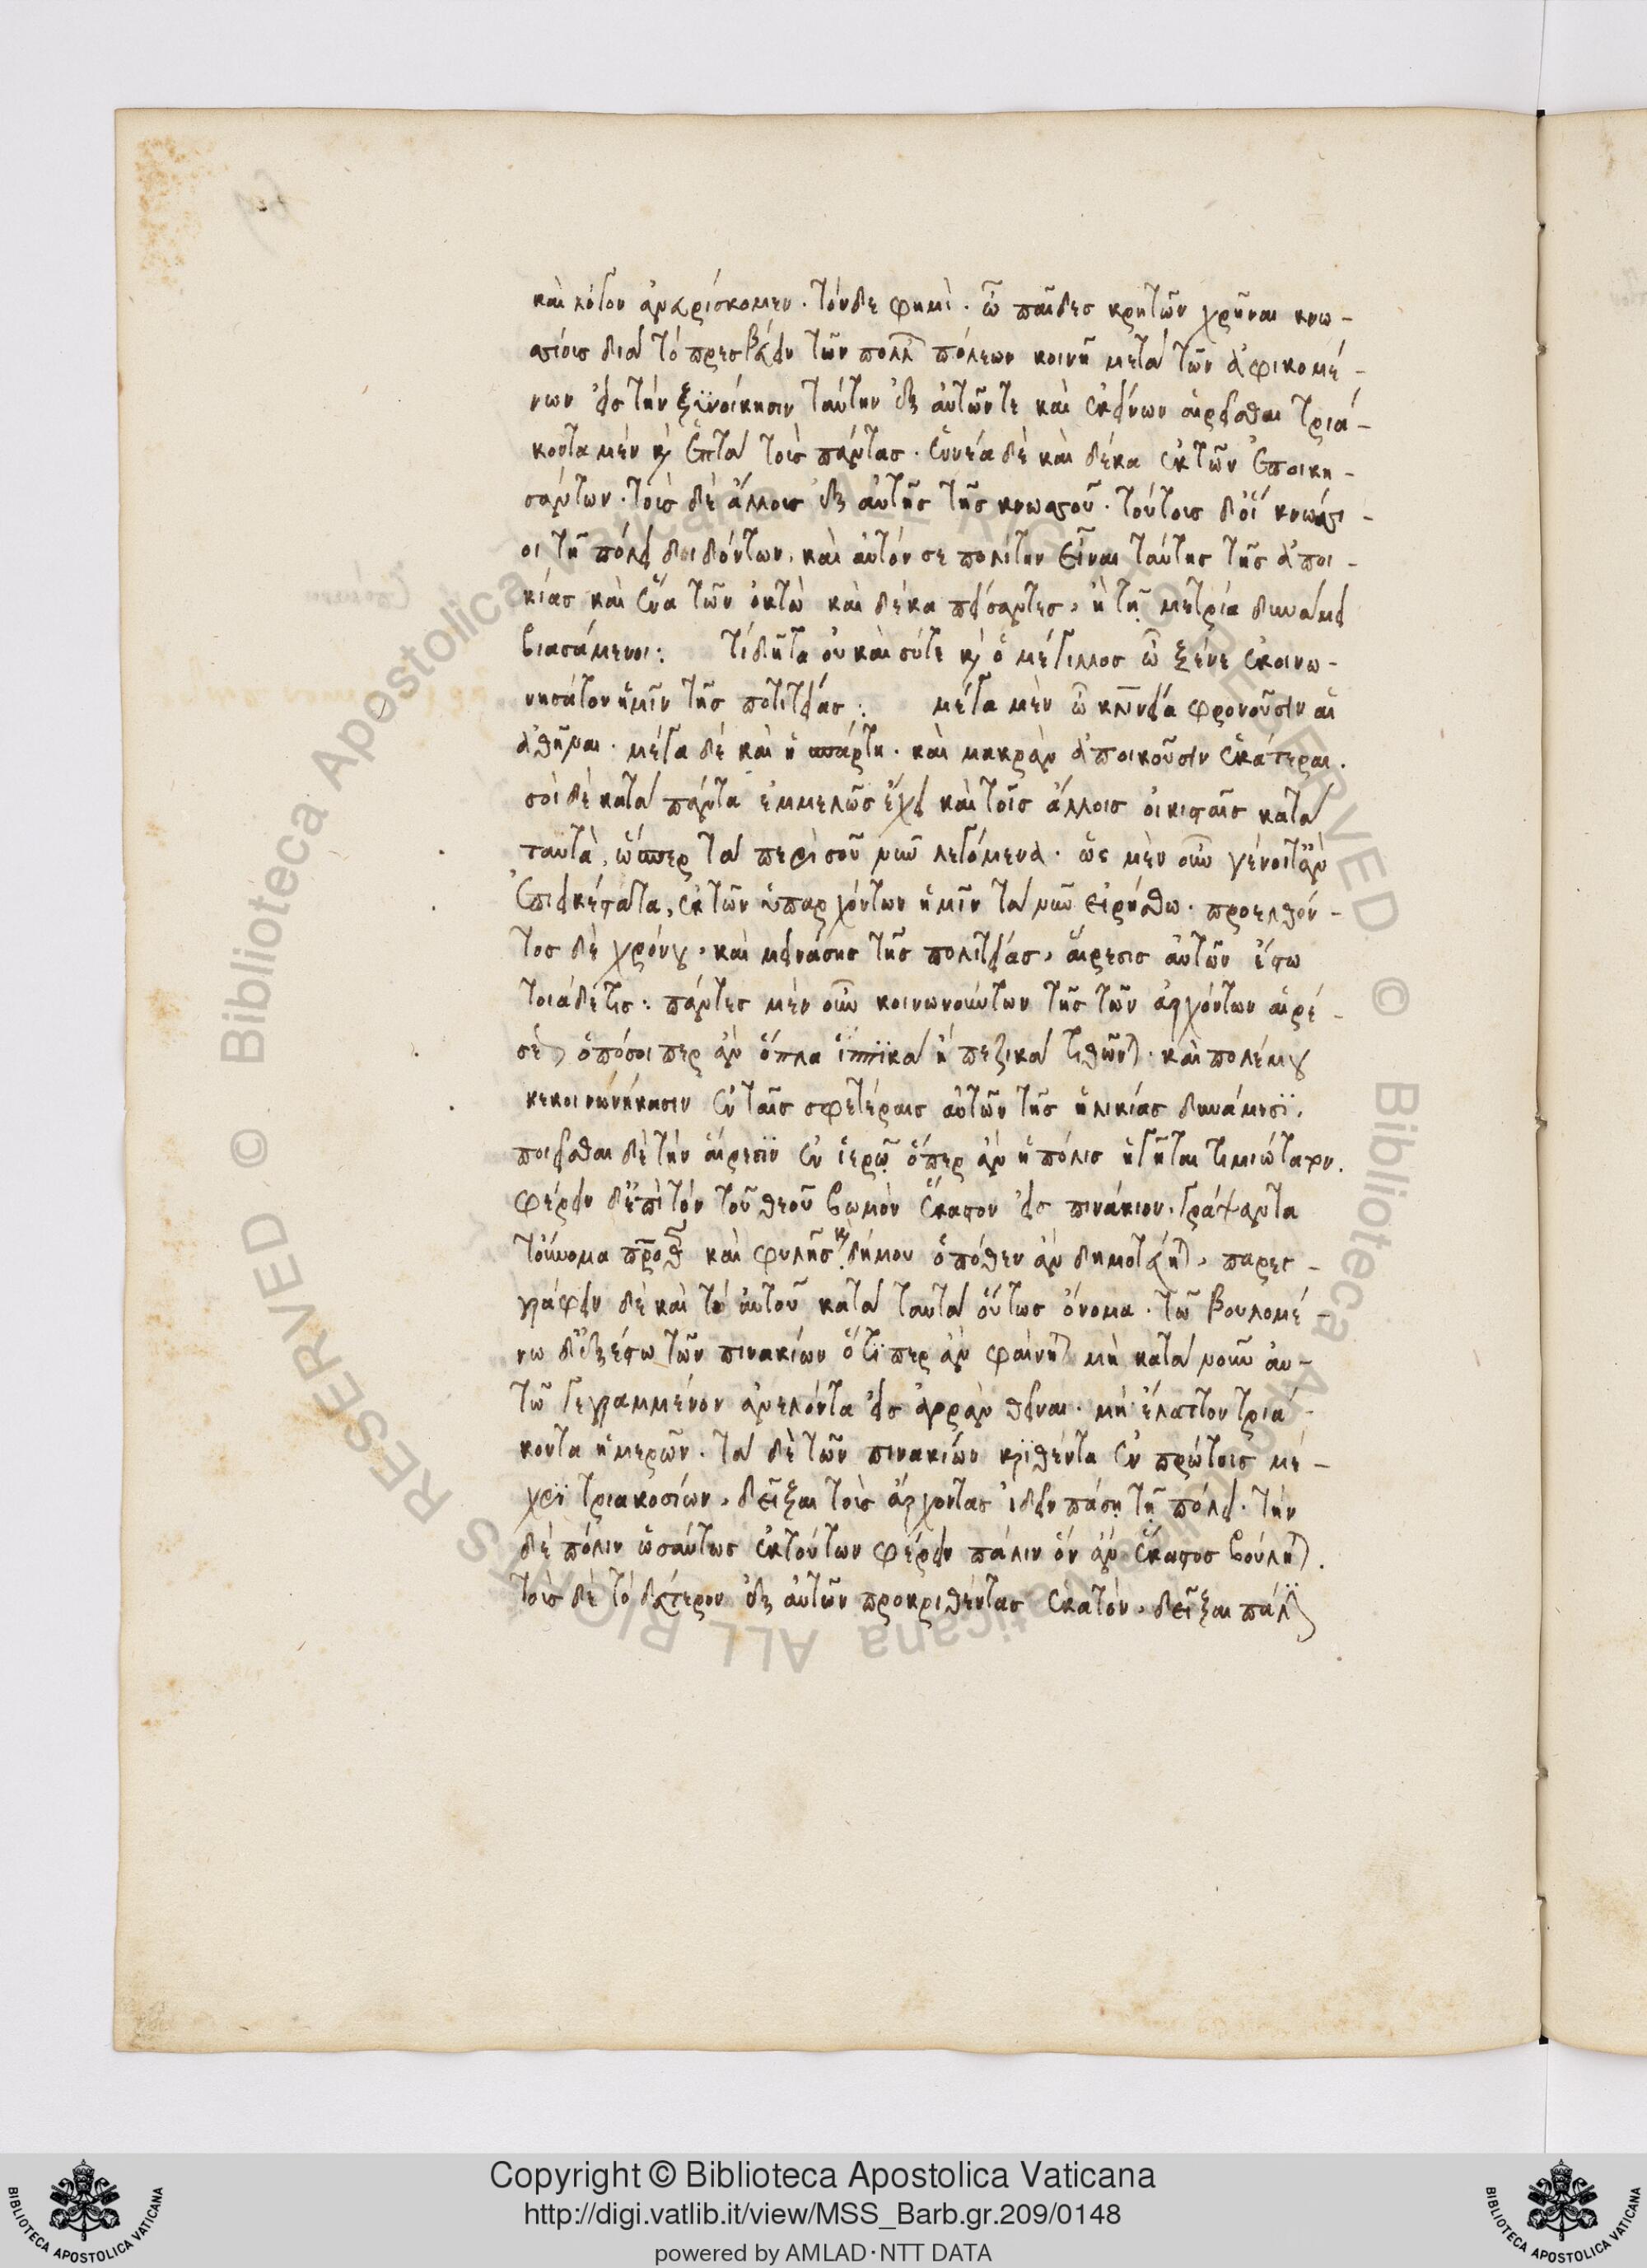 καὶ λόγον ἀνευρίσκομεν. τόνδε φημὶ. ὦ παῖδες κρητῶν χρῆναι κνω-
σίοις διὰ τὸ πρεσβεύειν τῶν πολλῶν πόλεων κοινῇ μετὰ τῶν ἀφικομέ-
νων εἰς τὴν ξυνοίκησιν ταύτην ἐξ αὐτῶντε καὶ ἐκείνων αἱρεῖσθαι τριά-
κοντα μὲν καὶ ἑπτὰ τοὺς πάντας. ἐννέα δὲ καὶ δέκα ἐκ τῶν ἐποικη-
σάντων. τοὺς δὲ ἄλλους ἐξ αὐτῆς τῆς κνωσοῦ. τούτους δ' οἱ κνώσι-
οι τῇ πόλει σοι δόντων. καὶ αὐτόν σε πολίτην εἶναι ταύτης τῆς ἀποι-
κίας καὶ ἕνα τῶν ὀκτὼ καὶ δέκα πείσαντες, ἢ τῇ μετρίᾳ δυνάμει
βιασάμενοι: τί δῆτα οὐ καὶ σύτε καὶ ὁ μέγιλλος ὦ ξένε ἐκοινω-
νησάτον ἡμῖν τῆς πολιτείας: μέγα μὲν ὦ κλεινία φρονοῦσιν αἱ
ἀθῆναι. μέγα δὲ καὶ ἡ σπάρτη. καὶ μακρὰν ἀποικοῦσιν ἑκάτεραι.
σοὶ δὲ κατὰ πάντα ἐμμελῶς ἔχει καὶ τοῖς ἄλλοις οἰκισταῖς κατὰ
ταυτὰ, ὥσπερ τὰ περὶ σοῦ νῦν λεγόμενα. ὡς μὲν οὖν γένοιτ' ἂν
ἐπιεικέστατα, ἐκ τῶν ὑπαρχόντων ἡμῖν τὰ νῦν εἰρήσθω. προελθόν-
τος δὲ χρόνου, καὶ μεινάσης τῆς πολιτείας, αἵρεσις αὐτῶν ἔστω
τοιάδέ τις: πάντες μὲν οὖν κοινωνούντων τῆς τῶν ἀρχόντων αἱρέ-
σεως, ὁπόσοι περ ἂν ὅπλα ἱππϊκὰ ἢ πεζικὰ τιθῶνται. καὶ πολέμου
κεκοινωνήκασιν ἐν ταῖς σφετέραις αὐτῶν τῆς ἡλικίας δυνάμεσϊ.
ποιεῖσθαι δὲ τὴν αἵρεσϊν ἐν ἱερῷ ὅπερ ἂν ἡ πόλις ἡγῆται τιμιώτατον.
φέρειν δ' ἐπὶ τὸν τοῦ θεοῦ βωμὸν ἕκαστον εἰς πινάκιον. γράψαντα
τοὔνομα πρόθεν καὶ φυλῆς καὶ δήμου ὁπόθεν ἂν δημοτεύηται, παρεγ-
γράφειν δὲ καὶ τὸ αὑτοῦ κατὰ ταυτὰ οὕτως ὄνομα. τῷ βουλομέ-
νω δ' ἐξέστω τῶν πινακίων ὅτϊπερ ἂν φαίνηται μὴ κατὰ νοῦν αὐ-
τῷ γεγραμμένον ἀνελόντα εἰς ἀγορὰν θεῖναι. μὴ ἔλαττον τριά-
κοντα ἡμερῶν. τὰ δὲ τῶν πινακίων κρϊθέντα ἐν πρώτοις μέ-
χρϊ τριακοσίων, δεῖξαι τοὺς ἄρχοντας ἰδεῖν πάσῃ τῇ πόλει. τὴν
δὲ πόλιν ὡσαύτως ἐκ τούτων φέρειν πάλιν ὃν ἂν ἕκαστος βούληται.
τοὺς δὲ τὸ δεύτερον ἐξ αὐτῶν προκριθέντας ἑκατὸν, δεῖξαι πάλϊν
Copyright © Biblioteca Apostolica Vaticana
http://digi.vatlib.it/view/MSS_Barb.gr.209/0148
powered by AMLAD·NTT DATA